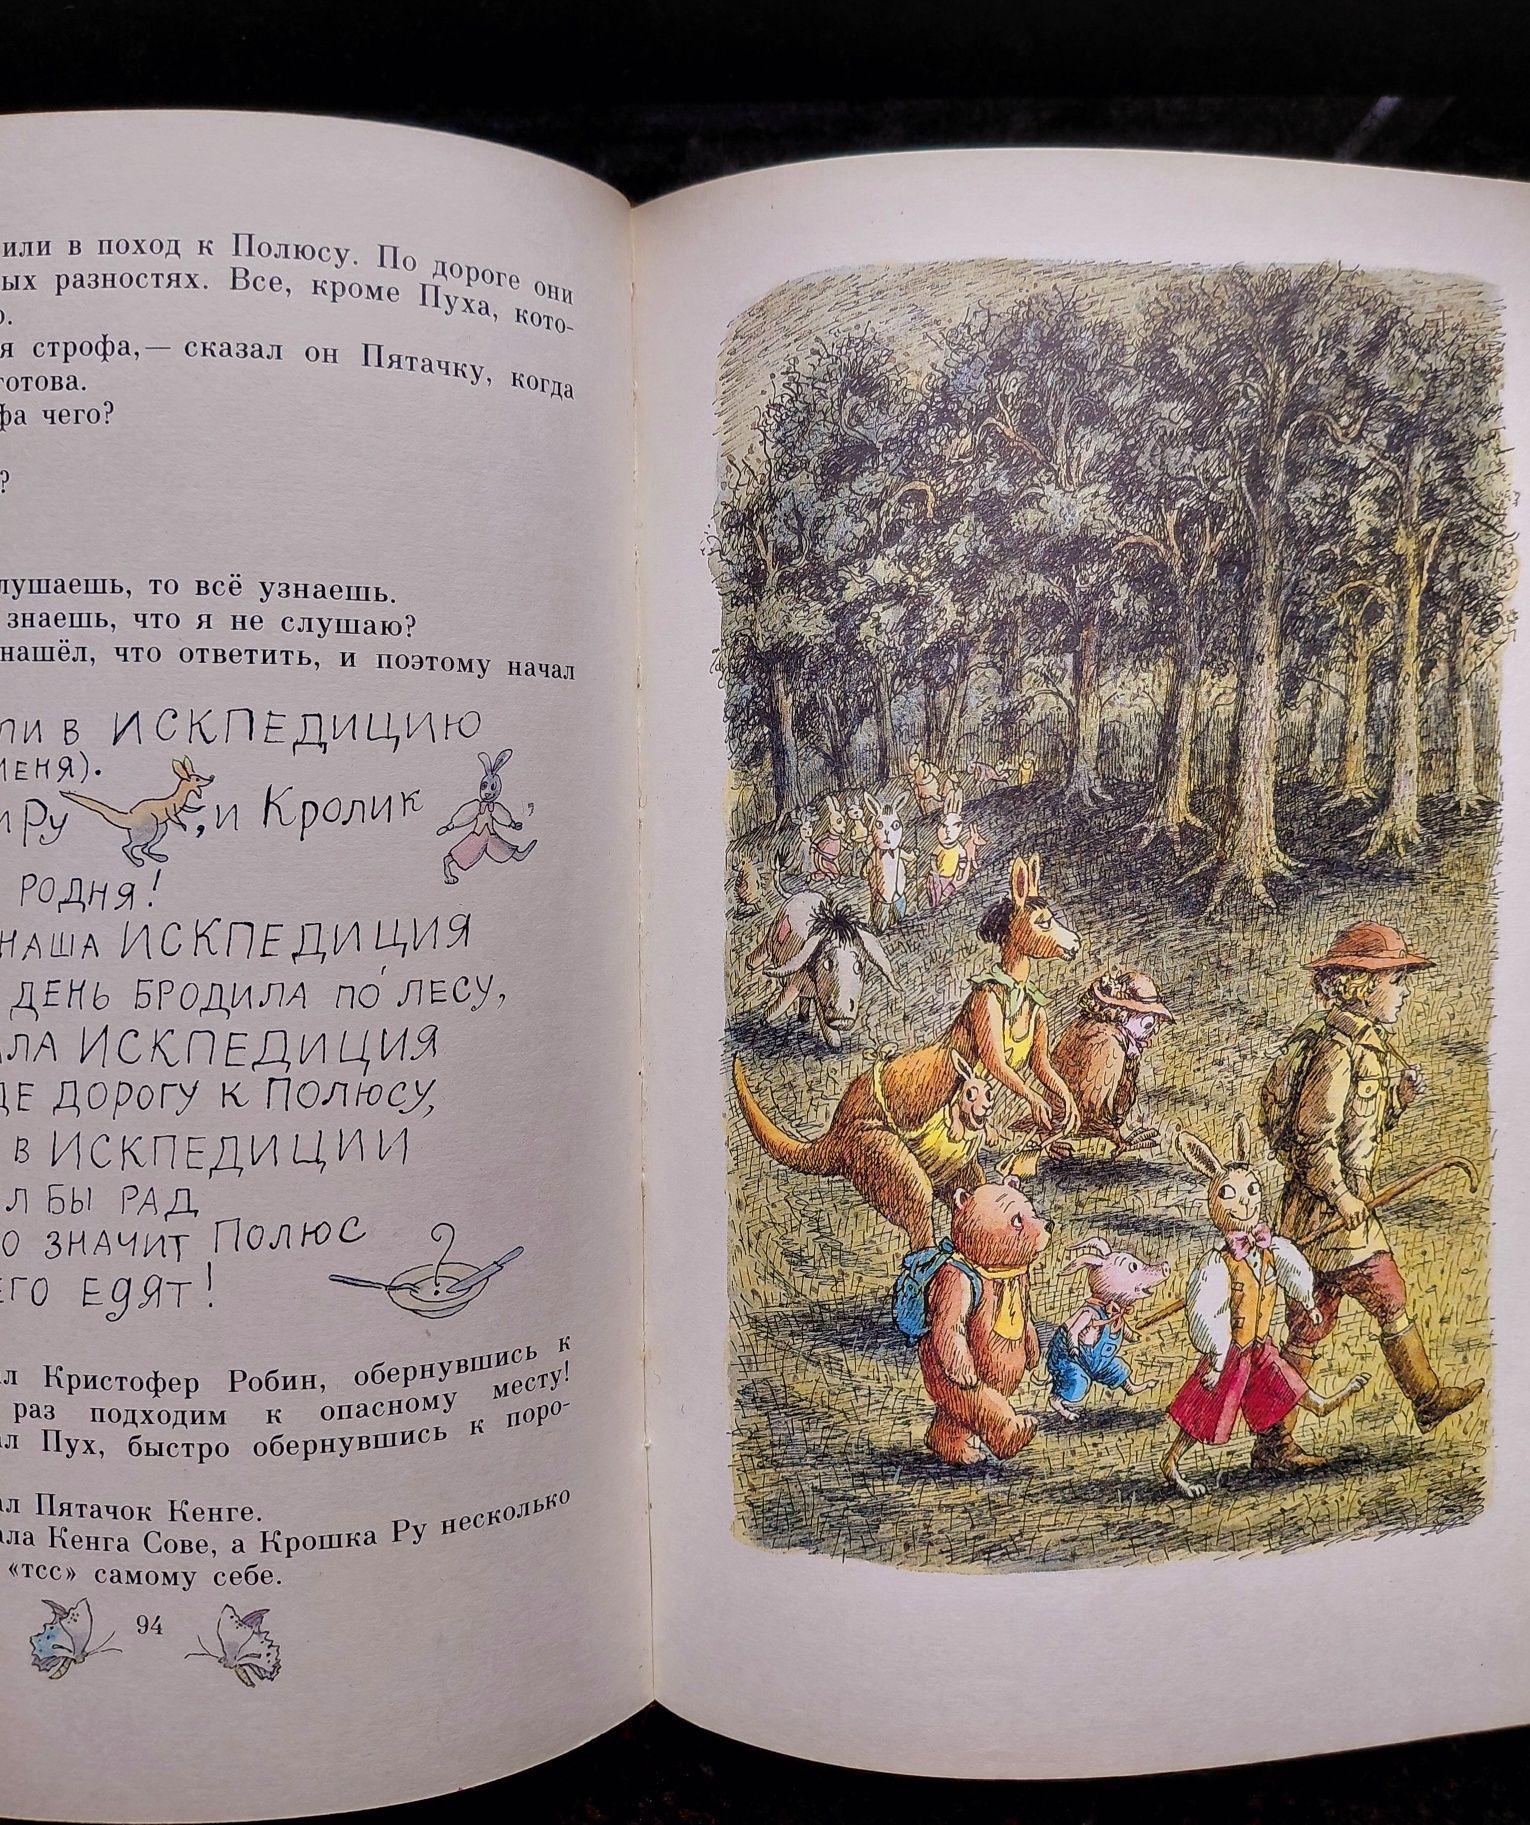 или в поход к Полюсу. По дороге они
ых разностях. Все, кроме Пуха, кото-
о.
я строфа,— сказал он Пятачку, когда
готова.
фа чего?
?
лушаешь, то всё узнаешь.
знаешь, что я не слушаю?
нашёл, что ответить, и поэтому начал
ли в ИСКПЕДИЦИЮ
меня).
и Ру, и Кролик,
РОДНЯ!
НАША ИСКПЕДИЦИЯ
ДЕНЬ БРОДИЛА ПО́ ЛЕСУ,
АЛА ИСКПЕДИЦИЯ
ДЕ ДОРОГУ К ПОЛЮСУ,
В ИСКПЕДИЦИИ
Л БЫ РАД
О ЗНАЧИТ ПОЛЮС
ЕГО ЕДЯТ!
ал Кристофер Робин, обернувшись к
раз подходим к опасному месту!
ал Пух, быстро обернувшись к поро-
ал Пятачок Кенге.
ала Кенга Сове, а Крошка Ру несколько
«тсс» самому себе.
94